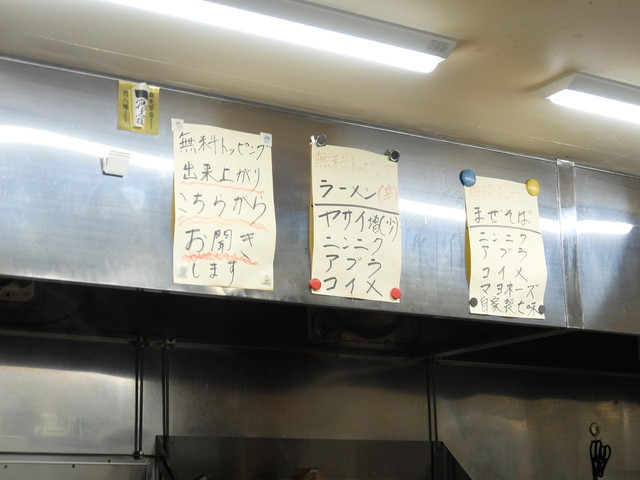 無料トッピング
出来上がり
こちらから
お聞き
します
無料トッピング
ラーメン
ヤサイ増(少)
ニンニク
アブラ
コイメ
まぜそば
ニンニク
アブラ
コイメ
マヨネーズ
自家製七味